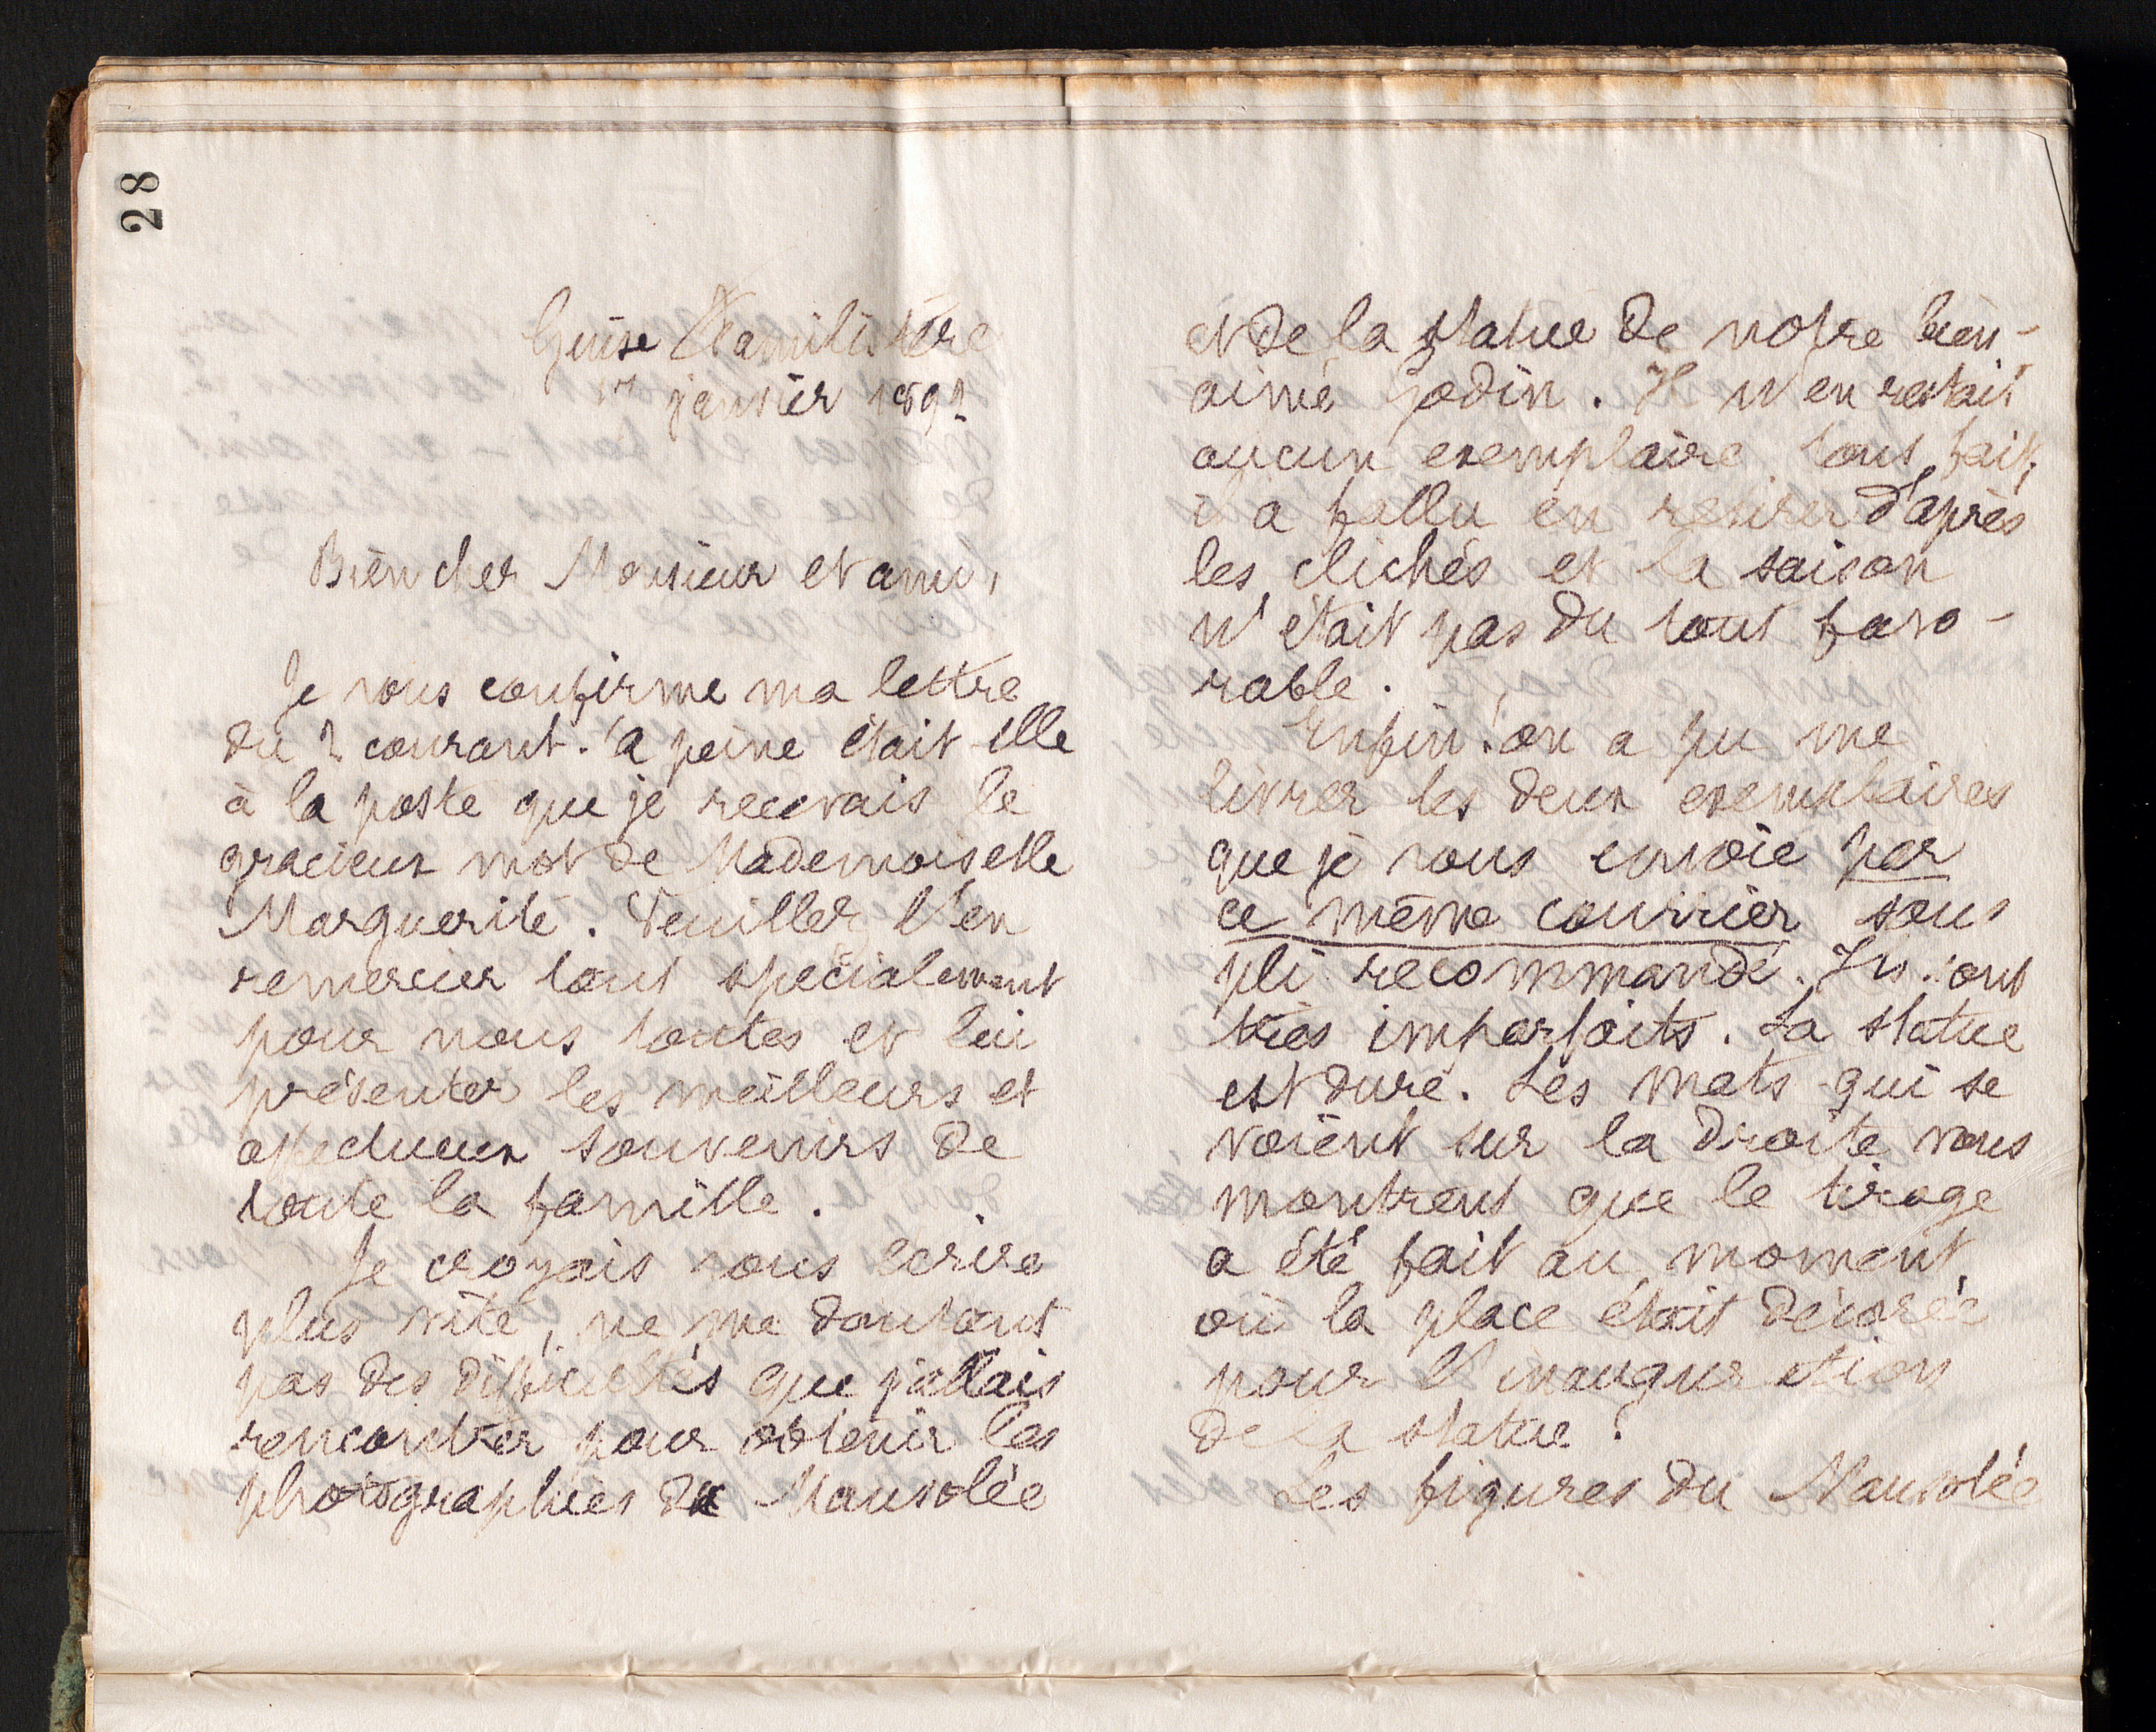 28
Guise Familistère
17 janvier 1891
Bien cher Monsieur et ami,
Je vous confirme ma lettre
du 2 courant. à peine était-elle
à la poste que je recevais le
gracieux mot de Mademoiselle
Marguerite. Veuillez l'en
remercier tout spécialement
pour nous toutes et lui
présenter les meilleurs et
affectueux souvenirs de
toute la famille.
Je croyais vous écrire
plus vite, ne me doutant
pas des difficultés que j'allais
rencontrer pour obtenir les
photographies du Mausolée
et de la statue de notre bien-
aimé Godin. Il n'en restait
aucun exemplaire tout fait,
il a fallu en retirer d'après
les clichés et la saison
n'était pas du tout favo-
rable.
Enfin! on a pu me
livrer les deux exemplaires
que je vous envoie par
ce même courrier sous
pli recommandé. Ils sont
très imparfaits. La statue
est dure. Les mats qui se
voient sur la droite vous
montrent que le tirage
a été fait au moment
où la place était décorée
pour l'inauguration
de la statue.
Les figures du Mausolée